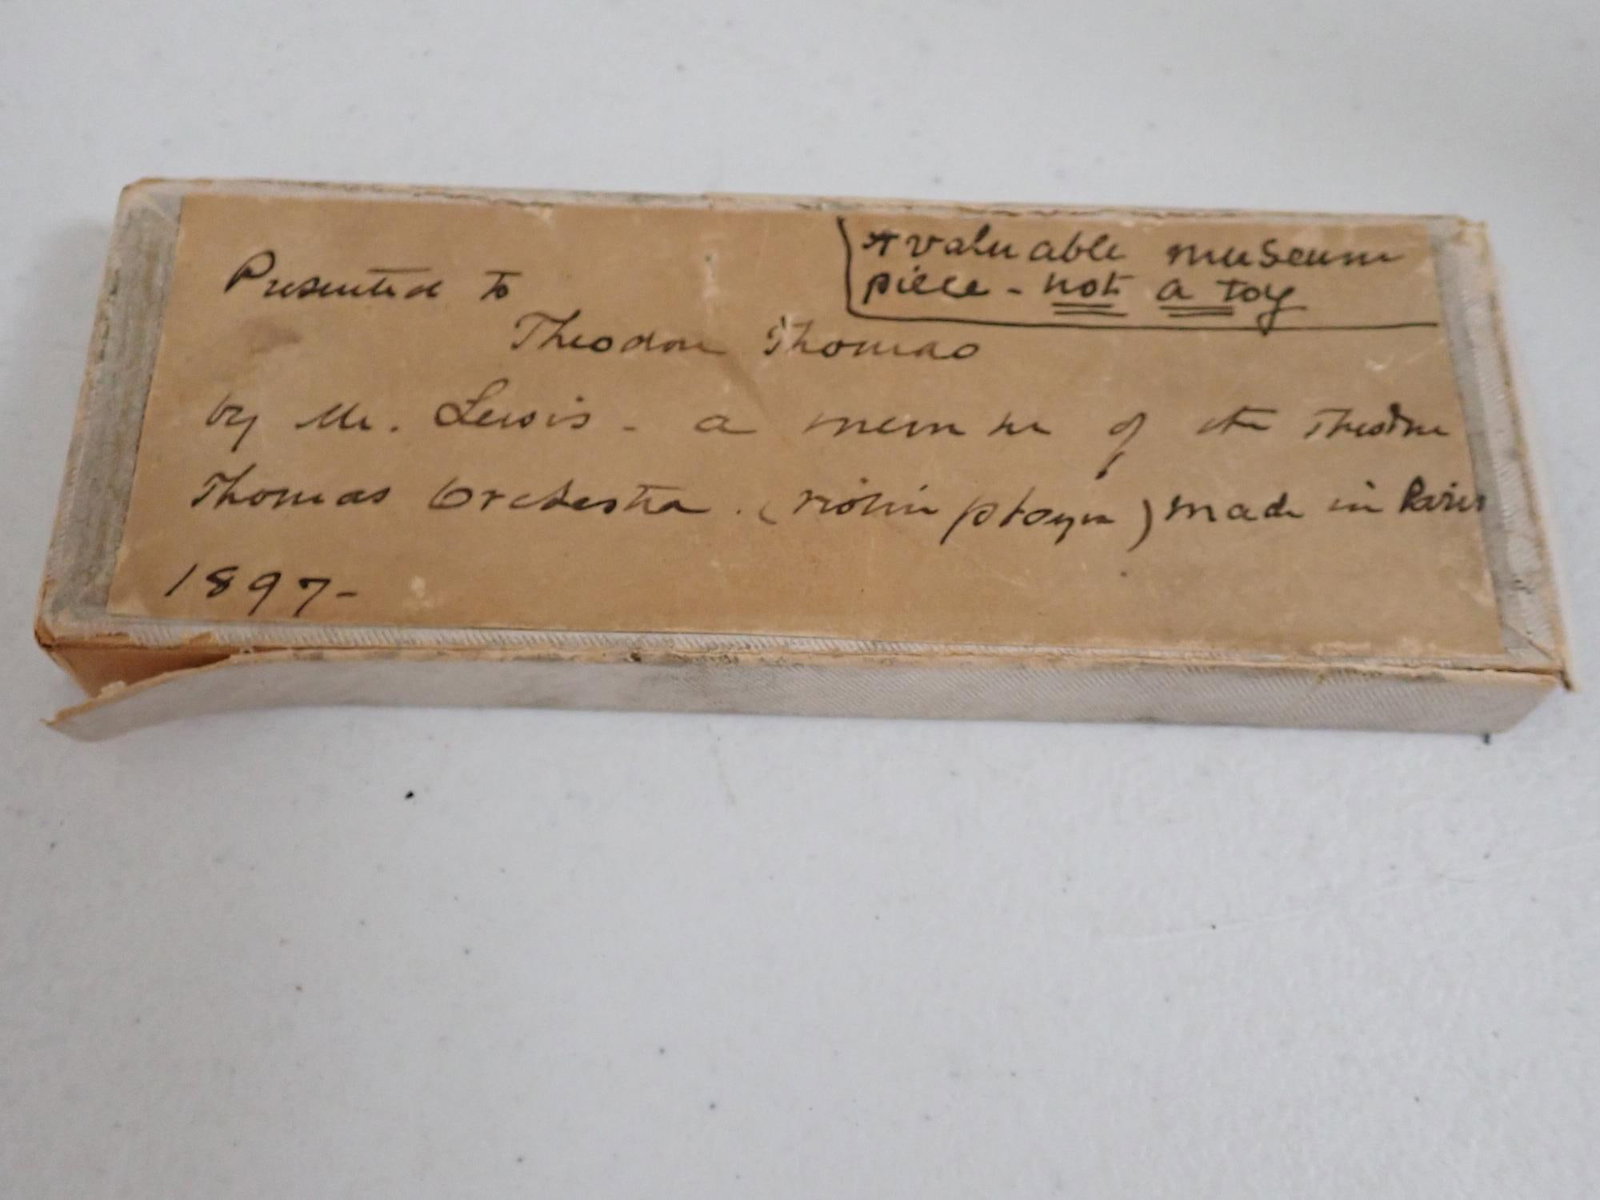 * valuable museum
piece - not a toy
Presented to
Theodore Thomas
by Mr. Lewis - a member of the Theodore
Thomas Orchestra. (violin player) made in Paris
1897-